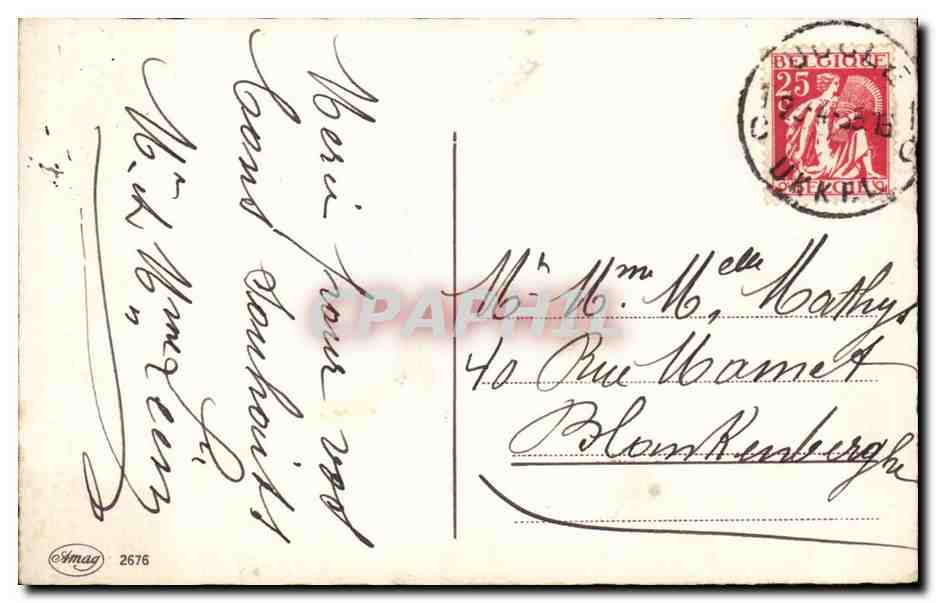 Merci pour vos
bons souhaits
Mr et Mme
Amag 2676
UCCLE
UKKEL
BELGIQUE
25
BELGIE
Mr Mme Melle Mathys
40 Rue Mamet
Blankenberghe
CPAPHIL